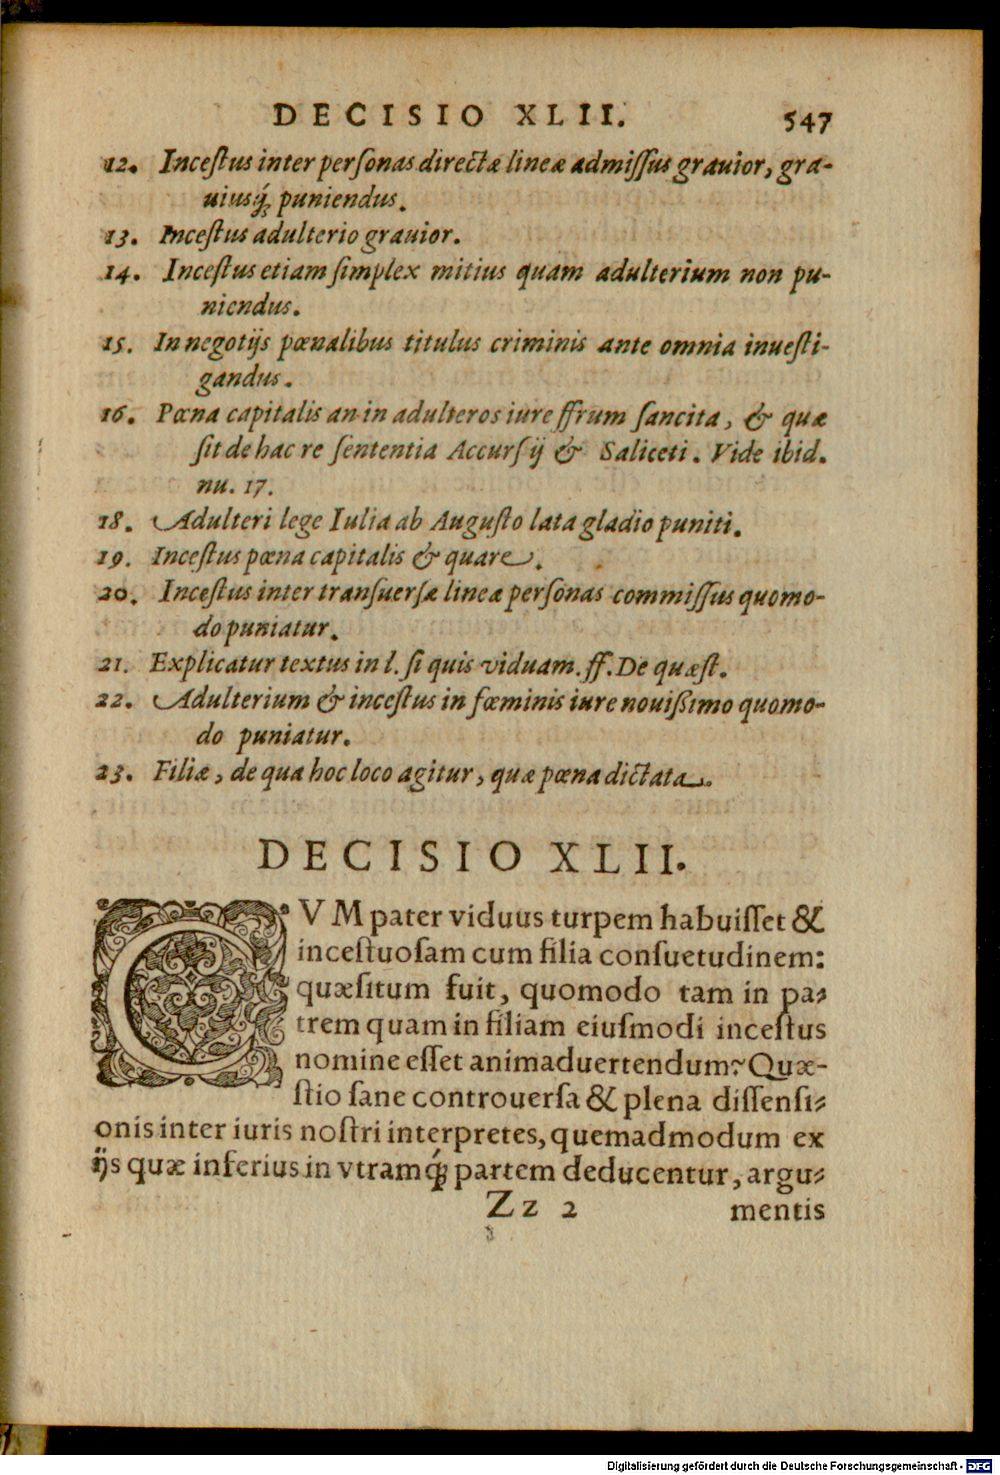 DECISIO XLII. 547
12. Inceſtus inter perſonas directæ lineæ admiſſus grauior, gra-
uiusq́; puniendus.
13. Inceſtus adulterio grauior.
14. Inceſtus etiam ſimplex mitius quam adulterium non pu-
niendus.
15. In negotijs pœnalibus titulus criminis ante omnia inueſti-
gandus.
16. Pœna capitalis an in adulteros iure ffrum ſancita, & quæ
ſit de hac re ſententia Accurſij & Saliceti. Vide ibid.
nu. 17.
18. Adulteri lege Iulia ab Auguſto lata gladio puniti.
19. Inceſtus pœna capitalis & quare.
20. Inceſtus inter tranſuerſæ lineæ perſonas commiſſus quomo-
do puniatur.
21. Explicatur textus in l. ſi quis viduam. ff. De quæſt.
22. Adulterium & inceſtus in fœminis iure nouißimo quomo-
do puniatur.
23. Filiæ, de qua hoc loco agitur, quæ pœna dictata.
DECISIO XLII.
CVM pater viduus turpem habuiſſet &
inceſtuoſam cum filia conſuetudinem:
quæſitum fuit, quomodo tam in pa-
trem quam in filiam eiuſmodi inceſtus
nomine eſſet animaduertendum? Quæ-
ſtio ſane controuerſa & plena diſſenſi-
onis inter iuris noſtri interpretes, quemadmodum ex
ijs quæ inferius in vtramq́; partem deducentur, argu-
Zz 2 mentis
Digitalisierung gefördert durch die Deutsche Forschungsgemeinschaft - DFG